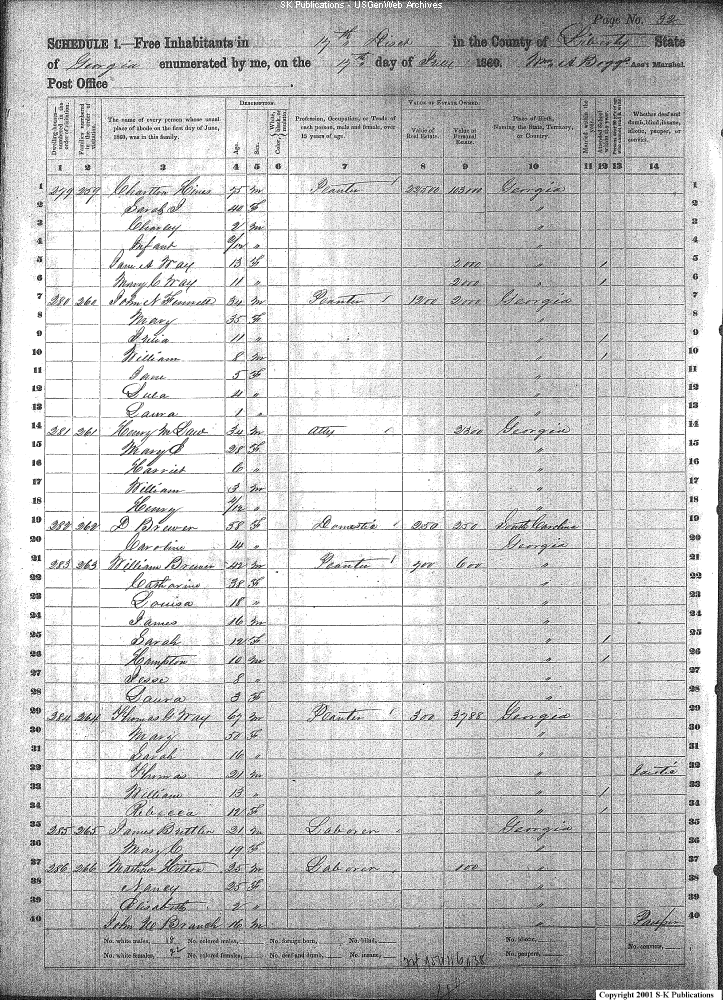 SK Publications - USGenWeb Archives
Page No. 32
SCHEDULE 1.—Free Inhabitants in 17th Dist in the County of Liberty State
of Georgia enumerated by me, on the 17th day of 1860. Wm A Boggs Ass't Marshal.
Post Office
DESCRIPTION. VALUE OF ESTATE OWNED.
Dwelling-houses— numbered in the order of visitation. Families numbered in the order of visitation. The name of every person whose usual place of abode on the first day of June, 1860, was in this family. Age. Sex. Color, White, black, or mulatto. Profession, Occupation, or Trade of each person, male and female, over 15 years of age. Value of Real Estate. Value of Personal Estate. Place of Birth, Naming the State, Territory, or Country. Married within the year. Attended School within the year. Whether deaf and dumb, blind, insane, idiotic, pauper, or convict.
1 2 3 4 5 6 7 8 9 10 11 12 13 14
1 279 259 Charlton Hines 75 M Planter 1 22500 103000 Georgia 1
2 Sarah J 40 F " 2
3 Charley 2 M " 3
4 Infant /12 " " 4
5 Jane A Way 13 F 2000 " 1 5
6 Mary C Way 11 " 2000 " 1 6
7 280 260 John N 34 M Planter 1 1200 2000 Georgia 7
8 Mary 35 F " 8
9 11 " " 1 9
10 William 8 M " 1 10
11 Jane 5 F " 11
12 4 " " 12
13 Laura 1 " " 13
14 281 261 Henry M Law 34 M Atty 1 2300 Georgia 14
15 Mary S 28 F " 15
16 Harriet 6 " " 16
17 William 3 M " 17
18 Henry /12 " " 18
19 282 262 D Brewer 58 F Domestic 1 250 250 South Carolina 19
20 Caroline 14 " Georgia 20
21 283 263 William Brewer 42 M Planter 1 600 " 21
22 Catharine 38 F " 22
23 Louisa 18 " " 23
24 James 16 M " 24
25 Sarah 12 F " 1 25
26 Hampton 10 M " 1 26
27 Jesse 8 " " 27
28 Laura 3 F " 28
29 284 264 Thomas G Way 67 M Planter 1 300 3788 Georgia 29
30 Mary 50 F " 30
31 Sarah 16 " " 31
32 Thomas 21 M " 32
33 William 13 " " 1 33
34 Rebecca 12 F " 1 34
35 285 265 James 21 M Laborer Georgia 35
36 Mary C 19 F " 36
37 286 266 25 M Laborer 100 " 37
38 Nancy 25 F " 38
39 Elisabeth 2 " " 39
40 John W Branch 16 M " Pauper 40
No. white males, 18 No. colored males, No. foreign born, No. blind, No. idiotic, No. convicts,
No. white females, 22 No. colored females, No. deaf and dumb, No. insane, No. paupers,
Copyright 2001 S-K Publications